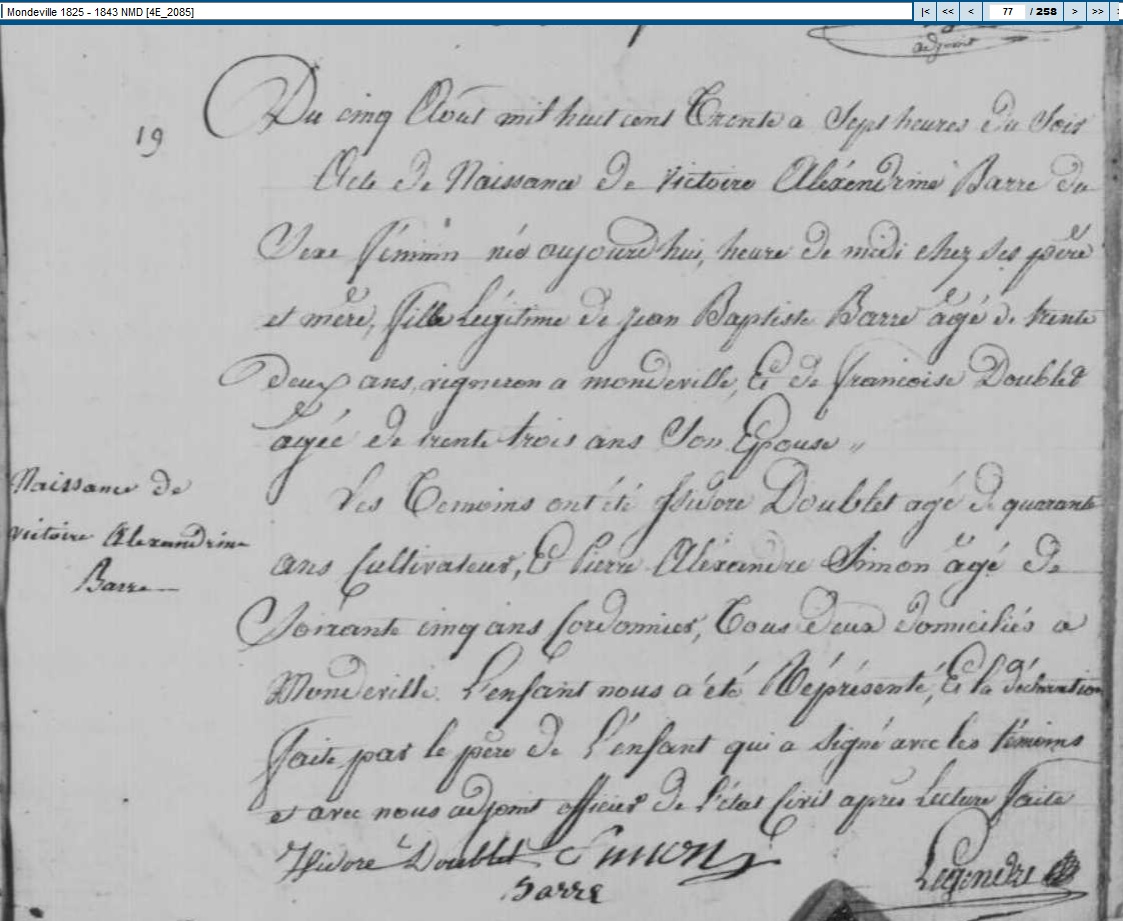 Mondeville 1825 - 1843 NMD [4E_2085]
|< << < 77 / 258 > >>
adjoint
19
Du cinq Aout mil huit cent Trente a Sept heures du Soir
Acte de Naissance de Victoire Aléxendrine Barre du
Sexe féminin née aujourd'hui, heure de midi chez ses père
et mère, fille Légitime de jean Baptiste Barre âgé de trente
deux ans, vigneron a mondeville, Et de françoise Doublet
âgée de trente trois ans Son Epouse "
Les Temoins ont été Isidore Doublet agé de quarante
ans Cultivateur, Et Pierre Aléxandre Simon âgé de
Soixante cinq ans Cordonnier, Tous deux domiciliés a
Mondeville. L'enfant nous a été Réprésenté, Et la déclaration
faite par le père de l'enfant qui a Signé avec les témoins
et avec nous adjoint officier de l'état Civil après Lecture faite
Naissance de
victoire Alexandrine
Barre
Isidore Doublet Simon
Barre
Legendre